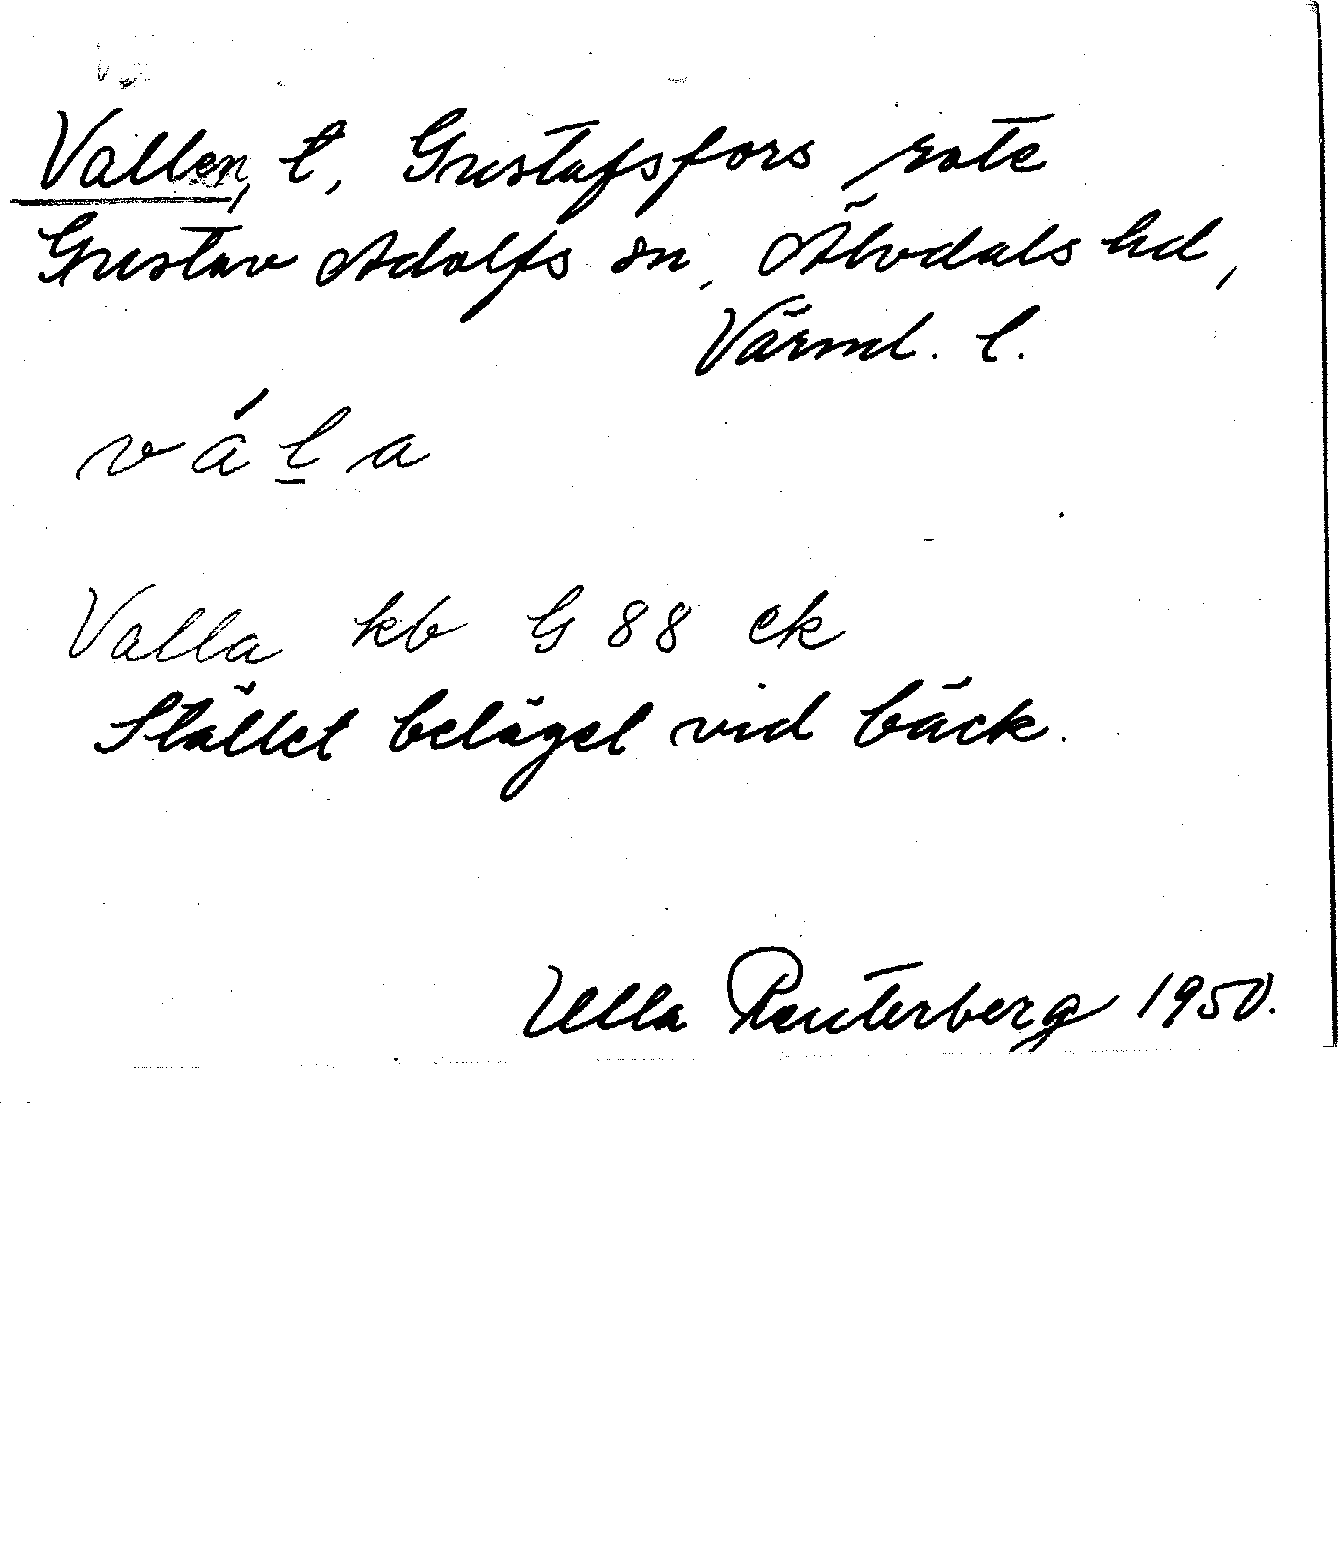 Vallen, t, Gustafsfors rote
Gustav Adolfs sn, Älvdals hd,
Värml. l.
vál̲a
Valla kb G 88 ek
Stället beläget vid bäck.
Ulla Reuterberg 1950.